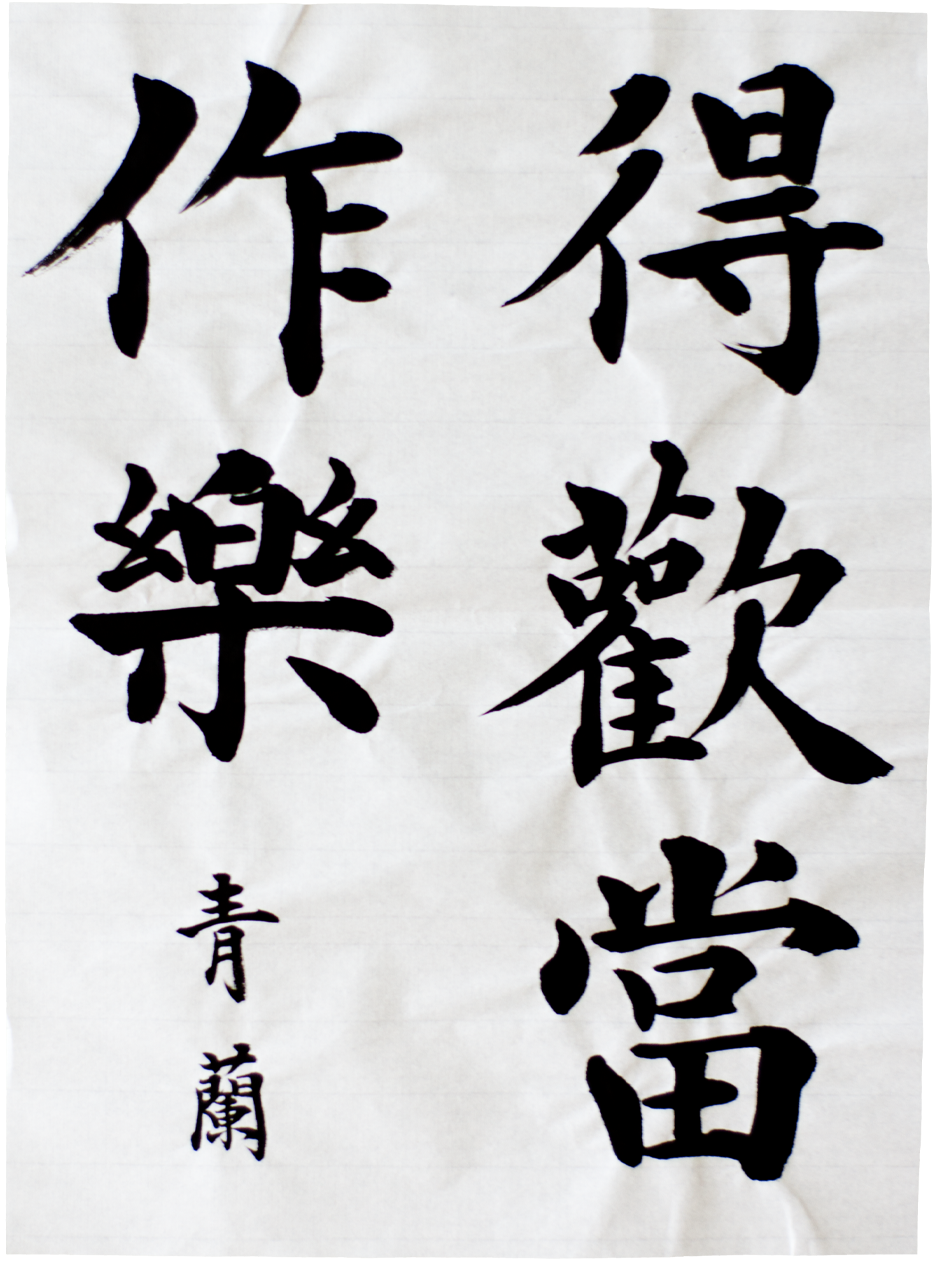 得歡當
作樂
青蘭